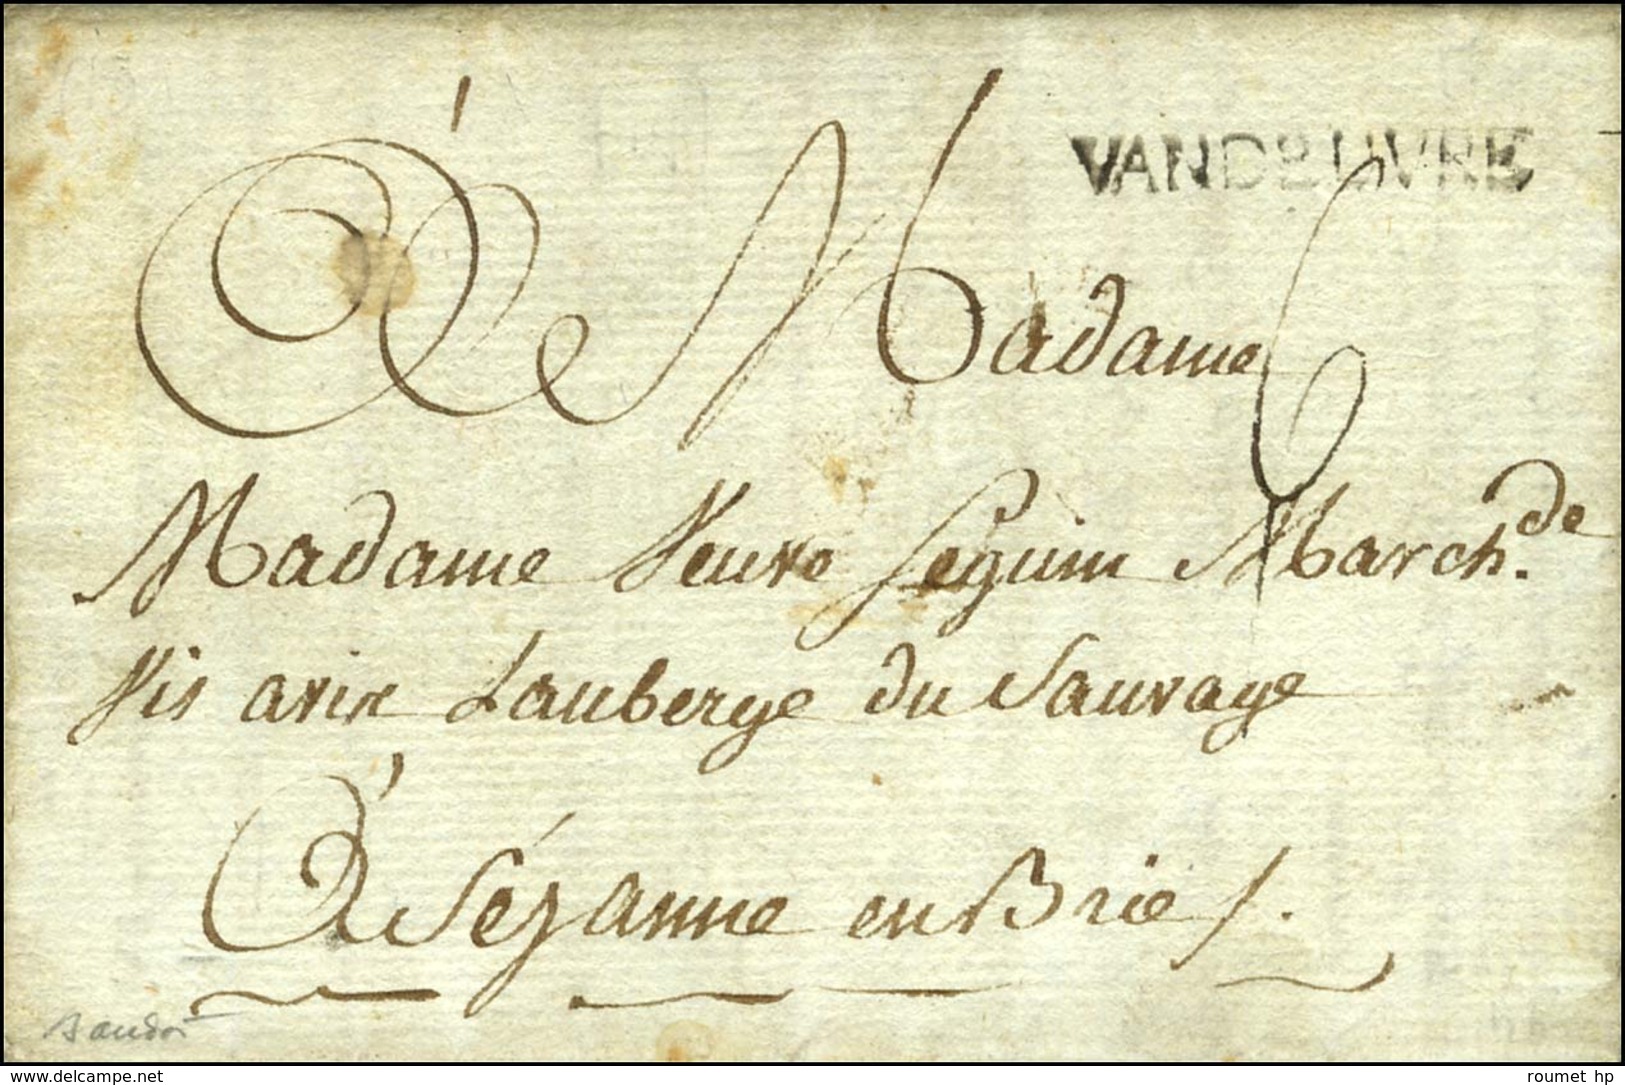 VANDEUVRE
À Madame
6
Madame Veuve Seguin Marchde
Vis avix Lauberge du Sauvage
À Sézanne en Brie /.
www.delcampe.net
roumet hp